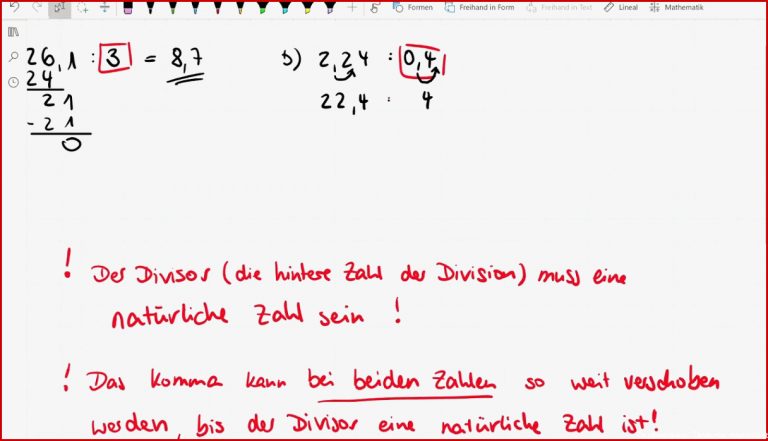 Formen Freihand in Form Freihand in Text Lineal Mathematik
26,1 : 3 = 8,7
24
21
- 21
0
b) 2,24 : 0,4
22,4 : 4
! Der Divisor (die hintere Zahl der Division) muss eine
natürliche Zahl sein !
! Das Komma kann bei beiden Zahlen so weit verschoben
werden, bis der Divisor eine natürliche Zahl ist!